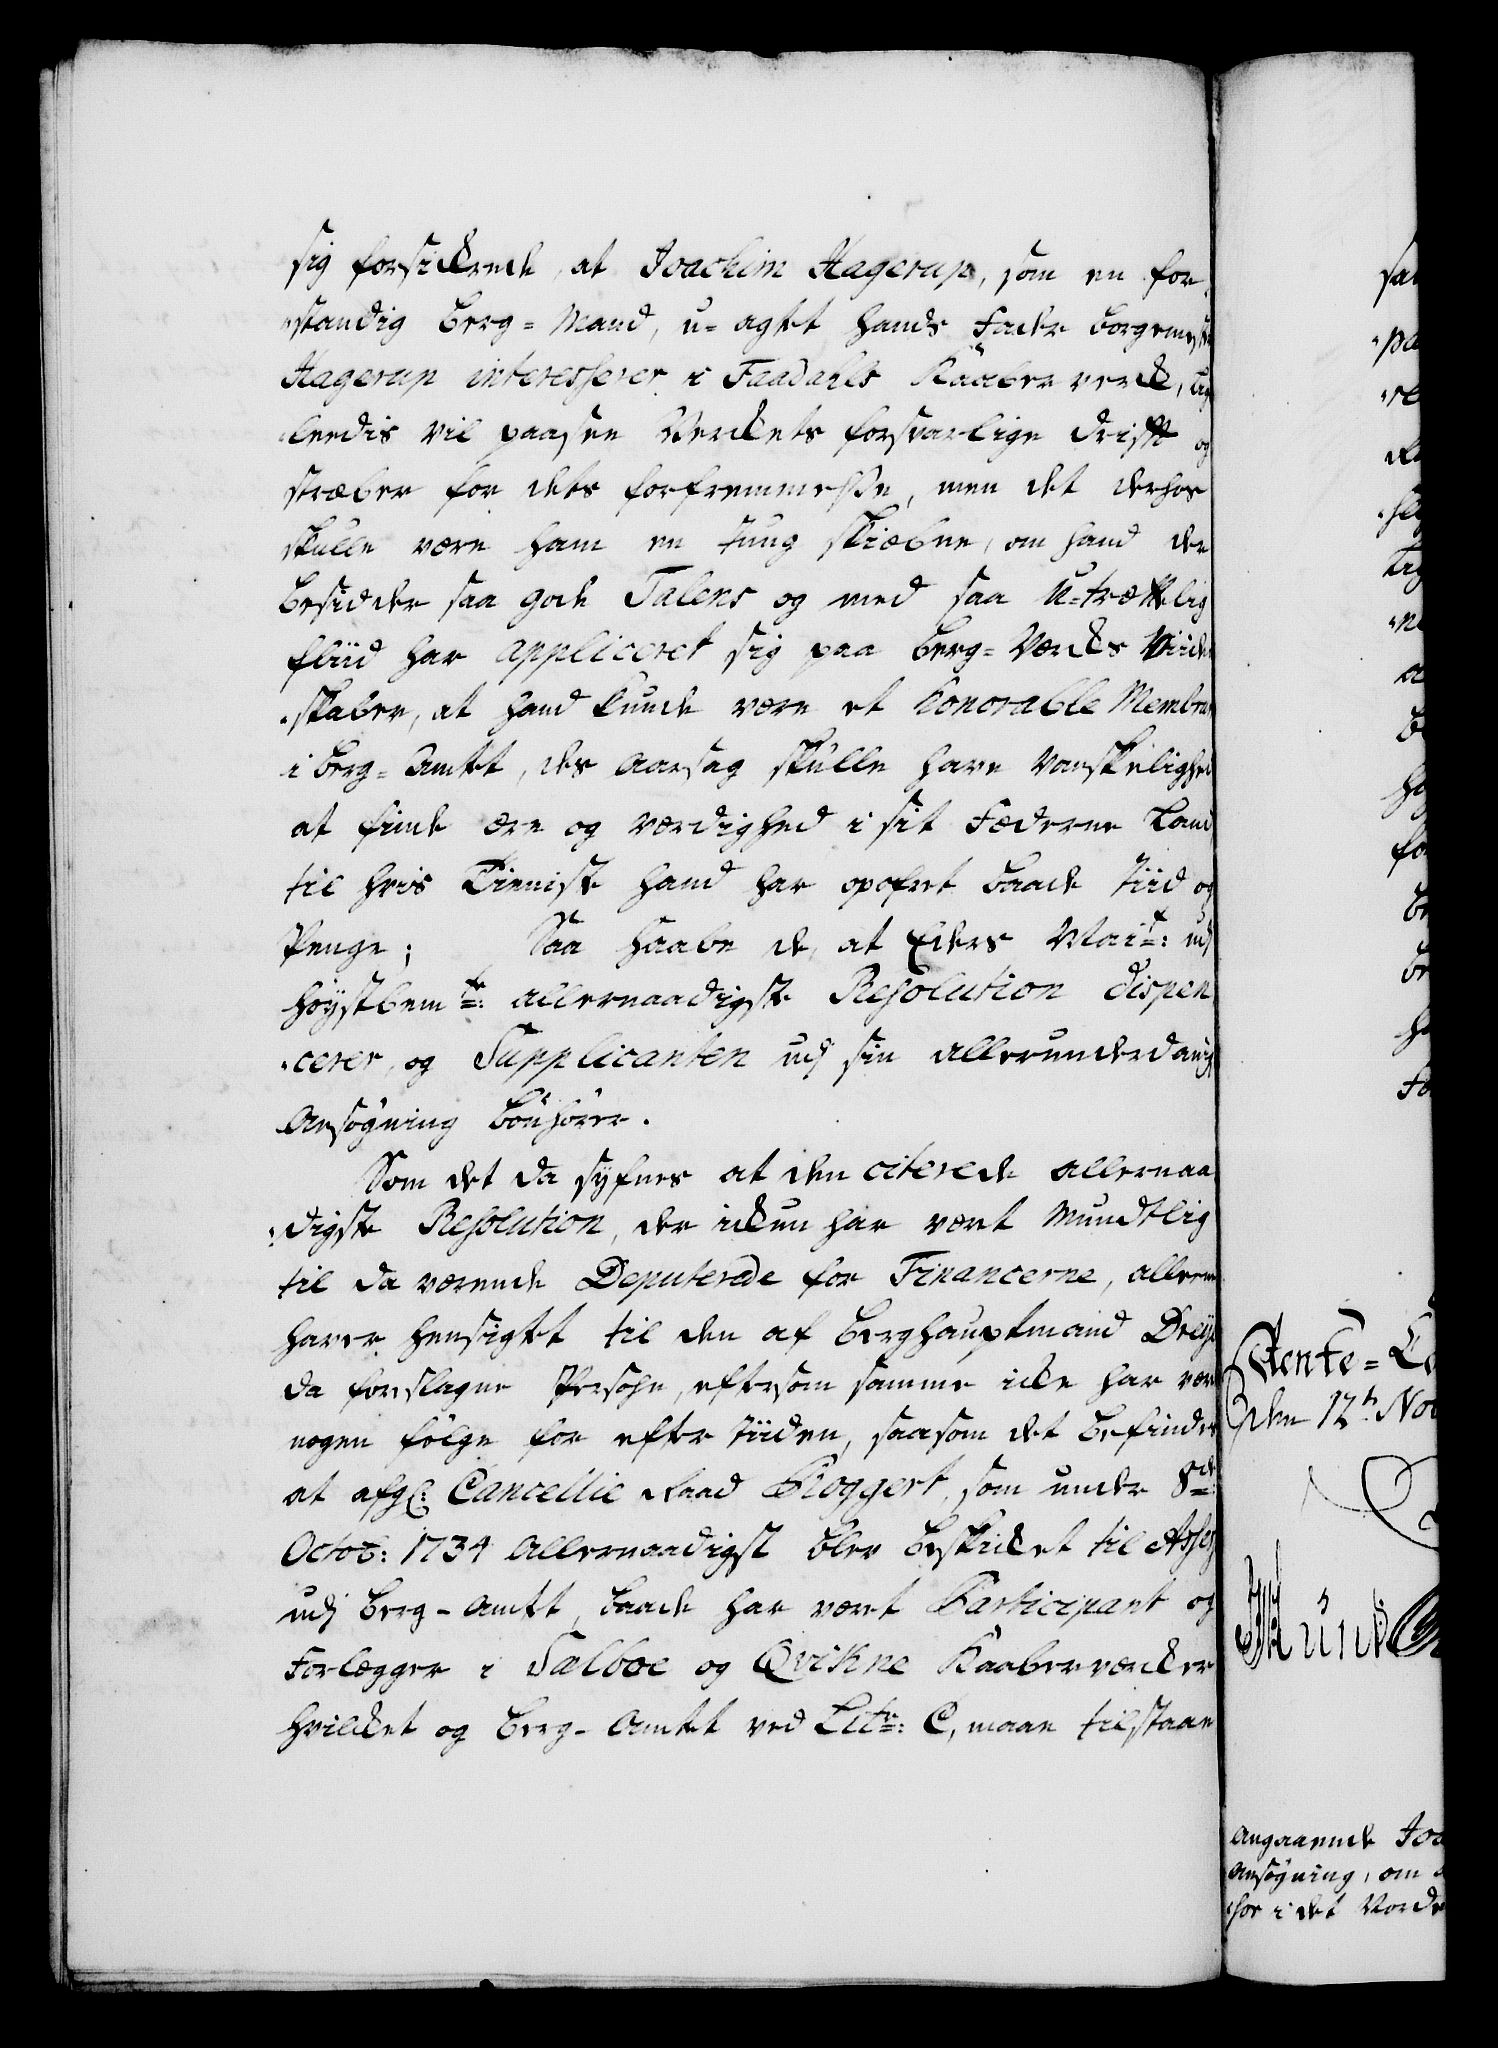 sig forsickrede, at Joachim Hagerup, som en for,,
,,standig Berg=Mand, u=agtet hands Fader Borgemester
Hagerup interesserer i Faadahls Kaaberverck, lige
,,ledis vil paasee Verckets forsvarlige Drifft og
stræber for dets forfremmelsse, men det derhos
skulle være ham en tung skiæbne, om hand der
besidder saa gode Talens og med saa u=trættelig
fliid har appliceret sig paa Berg=Værcks Viiden
,,skaber, at hand kunde være et honorable Membrum
i Berg=Amtet, des Aarsag skulle have vanskelighed
at finde Ære og værdighed i sit Fæderne Land
til hvis Tienniste hand har opofret baade tiid og
Penge; Saa haabe de, at Eders Mait: udj
høystbemte: allernaadigste Resolution dispen
,,cerer, og Supplicanten udj sin allerunderdanigste
Ansøgning bønhører.
Som det da syfnes at den citerede allernaa
,,digste Resolution, der ickun har vært Mundtlig
til da værende Deputerede for Financerne, allene
haver hensigtet til den af Berghauptmand Dreyer
da foreslagne Persohn, eftersom samme icke har været
nogen følge for efter tiiden, saasom det befindes
at afgl: Cancellie Raad Roggert, som under 8de:
Octob: 1734 Allernaadigst blev beskicket til Assessor
udj Berg-Amtet, baade har været Participant og
Forlægger i Sælboe og Qvikne Kaaberværcker
hvilcket og Berg-Amtet ved Litr: C, maae tilstaae
Rente=
den 12t Nov
Angaaende Joa
Ansøgning, om
i det Norden